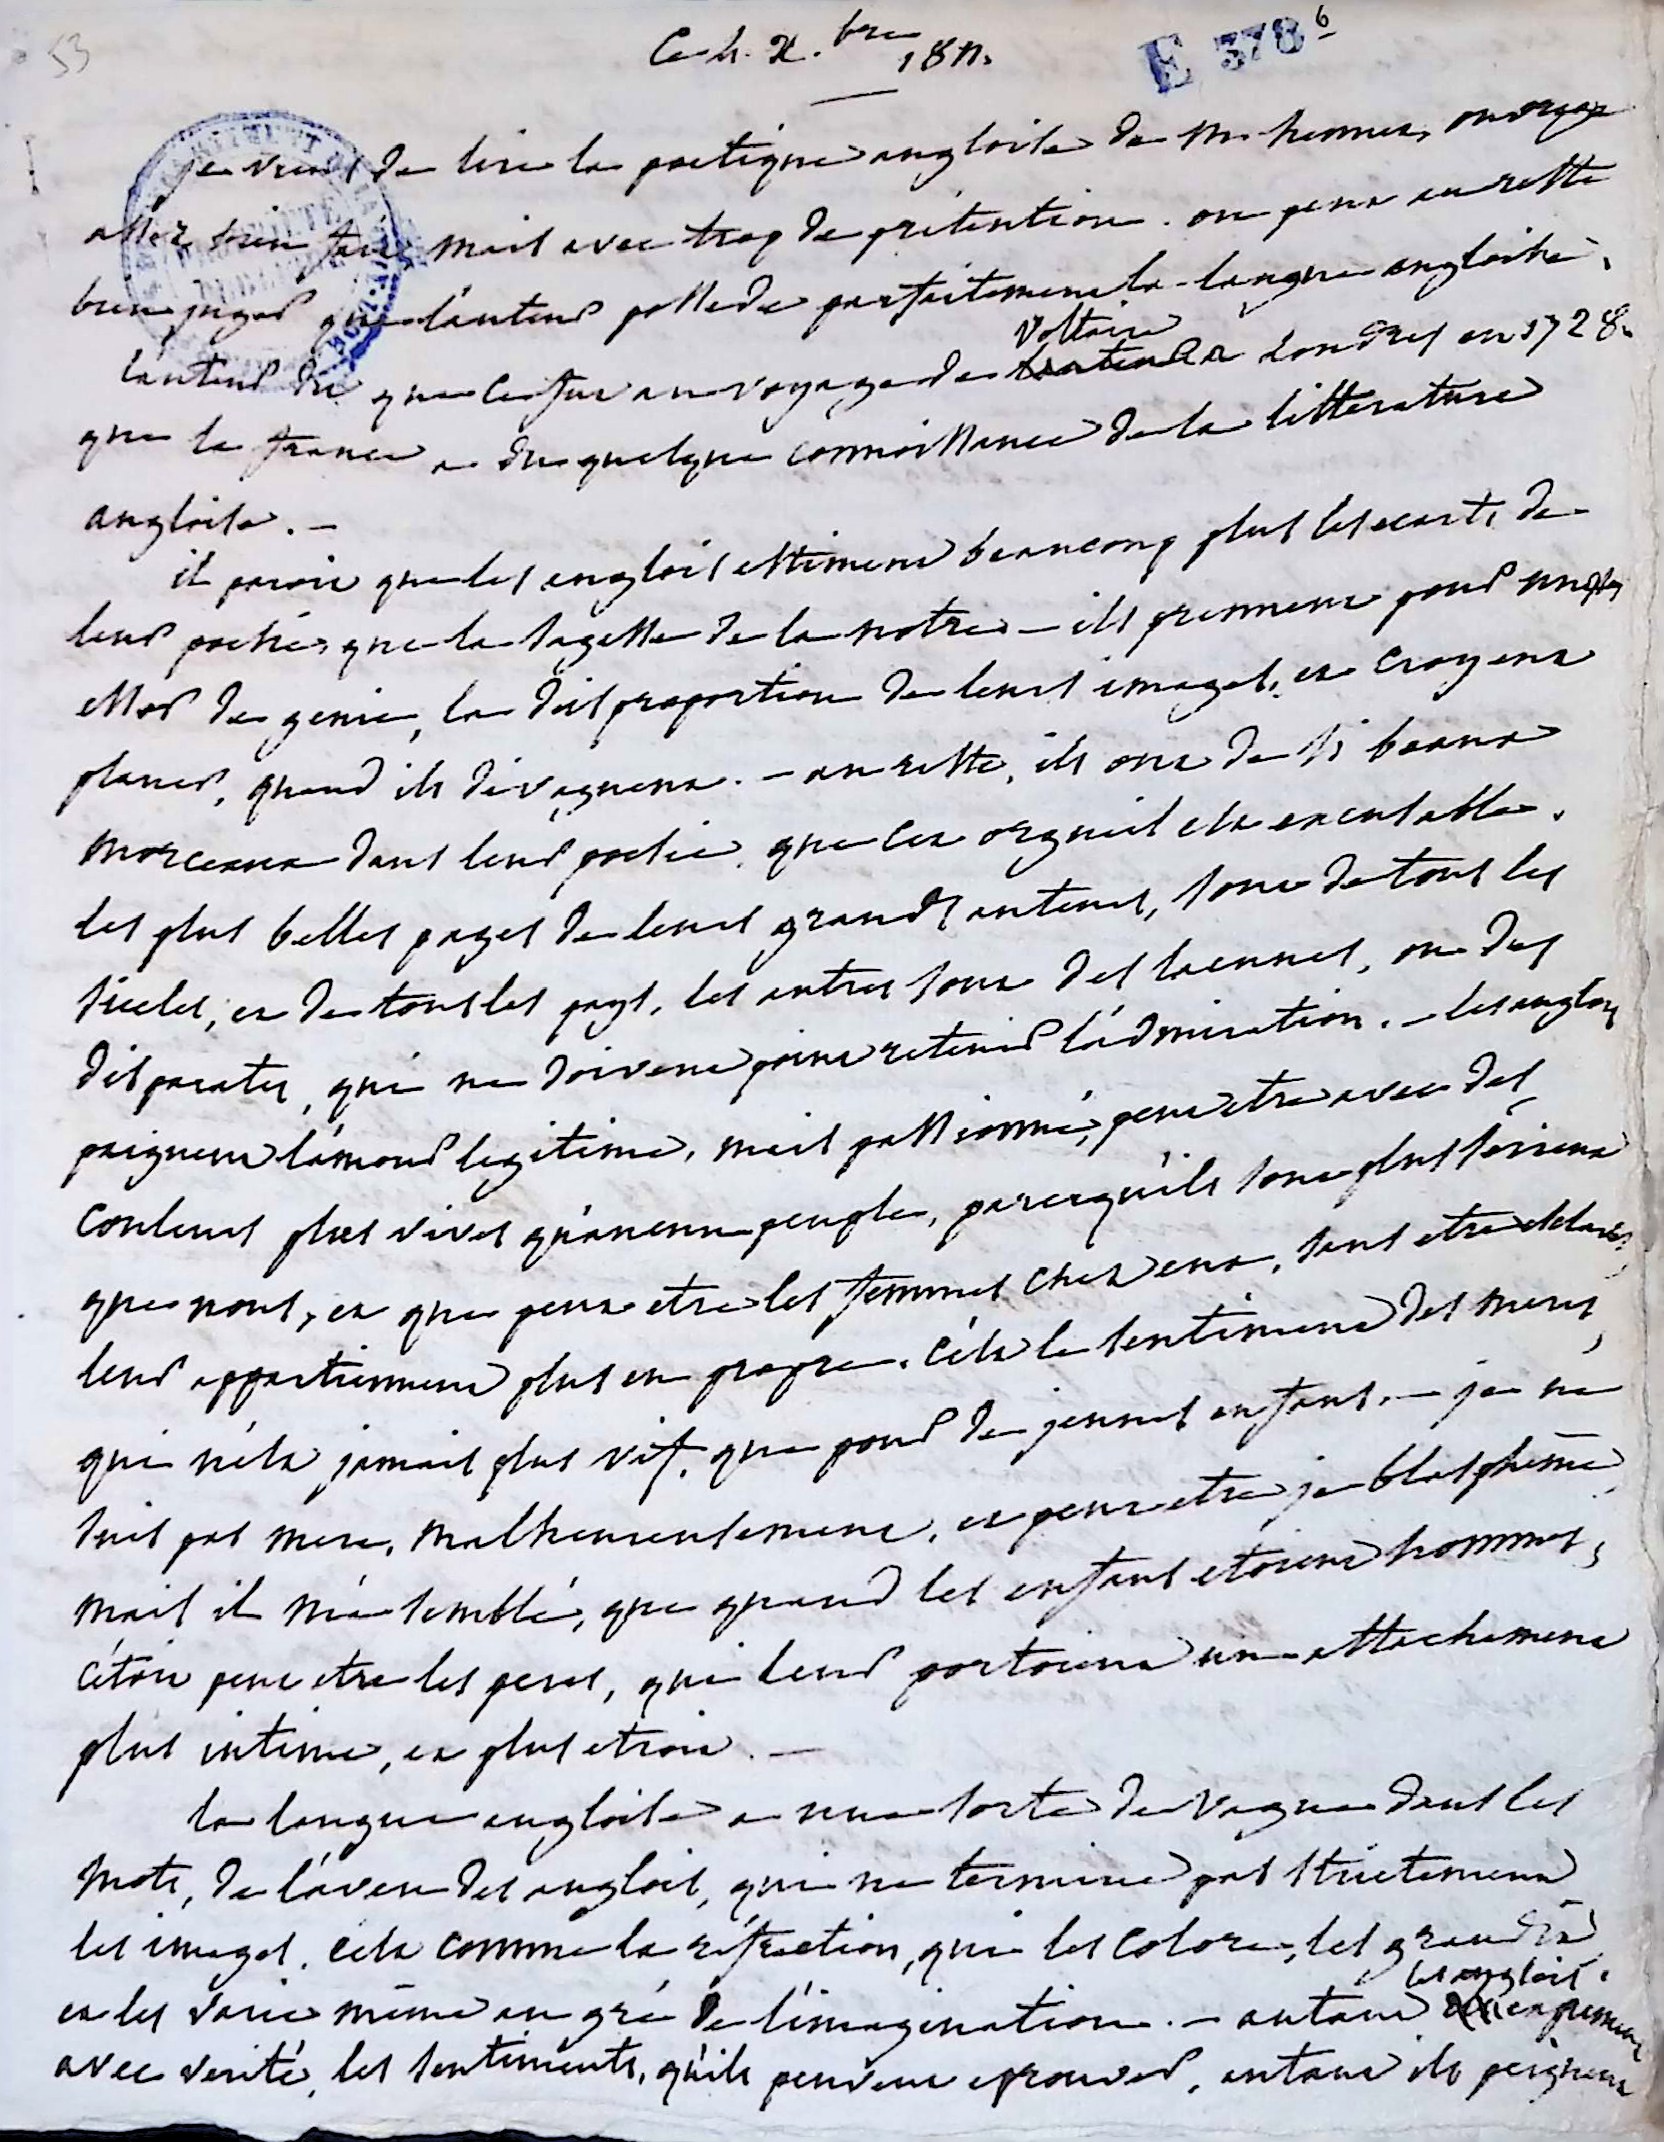 53
Ce 4. X.bre 1811.
E 378 6
je viens de lire la poëtique angloise de Mr hennet, ouvrage
assez bien fait, mais avec trop de prétention. on peut au reste
bien juger que l'auteur possede parfaitement la langue angloise.
l'auteur dit que ce fut au voyage de Voltaire a Londres en 1728.
que la france a du quelque connoissance de la littérature
angloise. —
il paroit que les anglois estiment beaucoup plus les ecarts de
leur poesie, que la sagesse de la notre — ils prennent pour
de genie, la disproportion de leurs images, et croyent
planer, quand ils divaguent. — au reste, ils ont de si beaux
morceaux dans leur poesie, que cet orgueil est excusable.
les plus belles pages de leurs grands auteurs, sont de tous les
siecles, et de tous les pays, les autres sont des lacunes, ou des
disparates, qui ne doivent point retenir l'admiration. — les anglois
peignent l'amour legitime, mais passionné, peut etre avec des
couleurs plus vives qu'aucun peuple, parcequ'ils sont plus sérieux
que nous, et que peut etre les femmes chez eux, sans etre esclaves,
leur appartiennent plus en propre. c'est le sentiment des meres,
qui n'est jamais plus vif, que pour de jeunes enfans. — je ne
suis pas mere, malheureusement, et peut etre je blasphême,
mais il m'a semblé, que quand les enfans etoient hommes,
c'étoit peut etre les peres, qui leur portoient un attachement
plus intime, et plus etroit. —
la langue angloise a une sorte de vague dans les
mots, de l'aveu des anglois, qui ne termine pas strictement
les images. c'est comme la réfraction, qui les colore, les grandit
et les varie même au gré de l'imagination. — autant les anglois expriment
avec verité, les sentiments, qu'ils peuvent eprouver, autant ils peignent